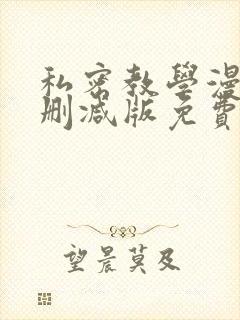 私密教學漫
刪減版免費
望晨莫及